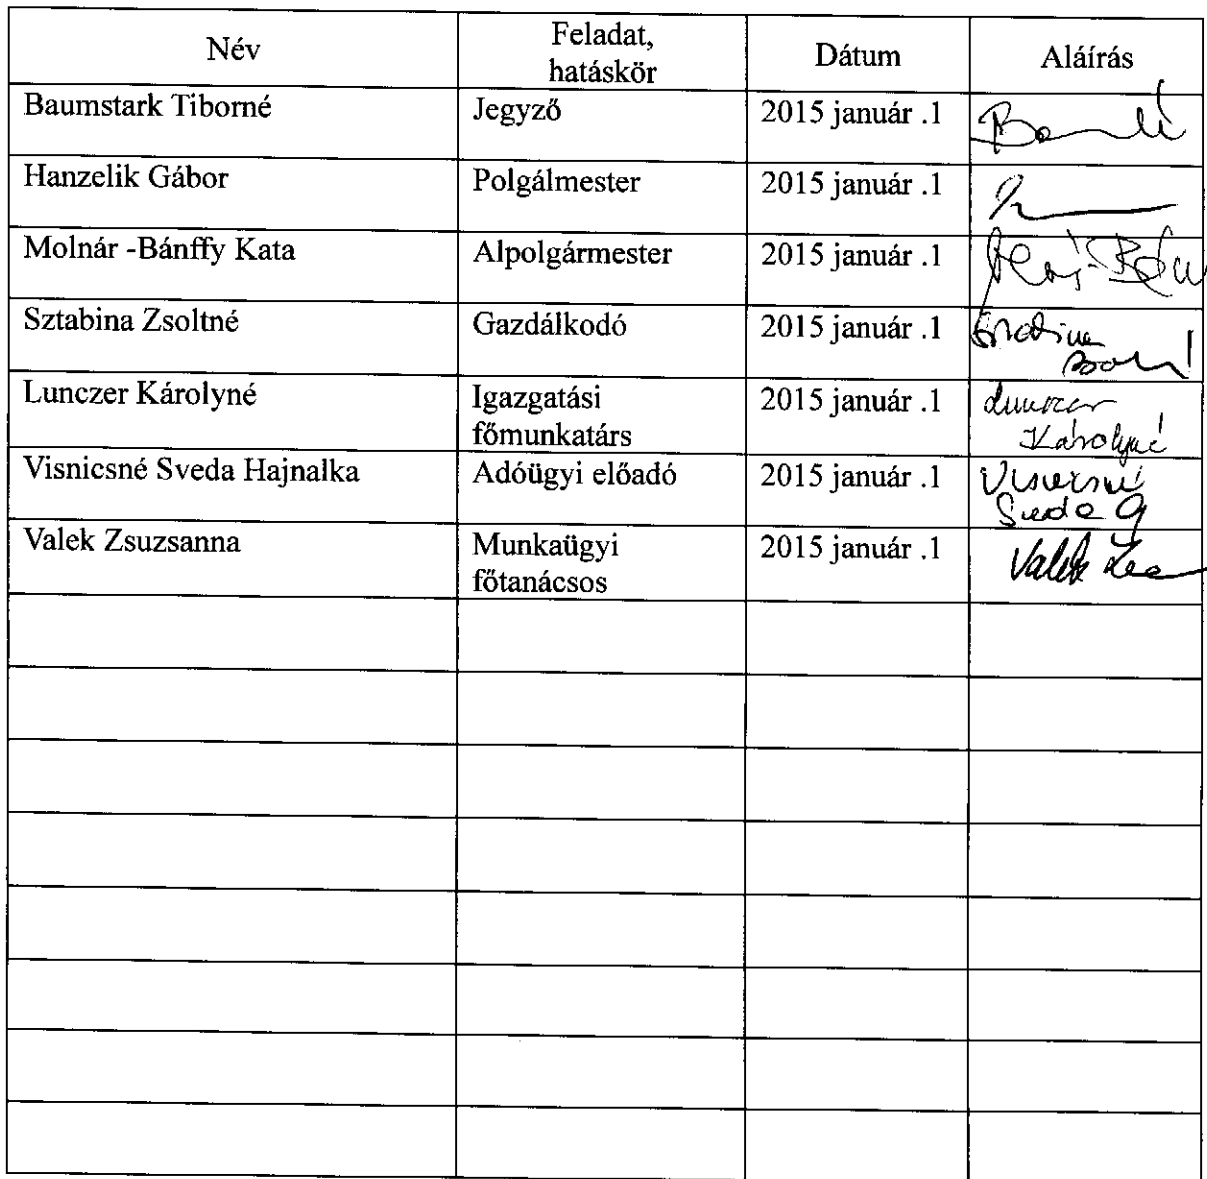 Név
Feladat,
hatáskör
Dátum
Aláírás
Baumstark Tiborné
Jegyző
2015 január .1
Hanzelik Gábor
Polgálmester
2015 január .1
Molnár -Bánffy Kata
Alpolgármester
2015 január .1
Sztabina Zsoltné
Gazdálkodó
2015 január .1
Lunczer Károlyné
Igazgatási
főmunkatárs
2015 január .1
Lunczer
Károlyné
Visnicsné Sveda Hajnalka
Adóügyi előadó
2015 január .1
Visnicsné
Sveda
Valek Zsuzsanna
Munkaügyi
főtanácsos
2015 január .1
Valek